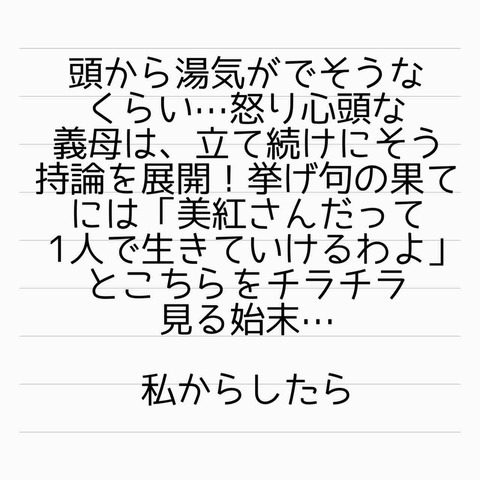 頭から湯気がでそうな
くらい…怒り心頭な
義母は、立て続けにそう
持論を展開！挙げ句の果て
には「美紅さんだって
1人で生きていけるわよ」
とこちらをチラチラ
見る始末…
私からしたら